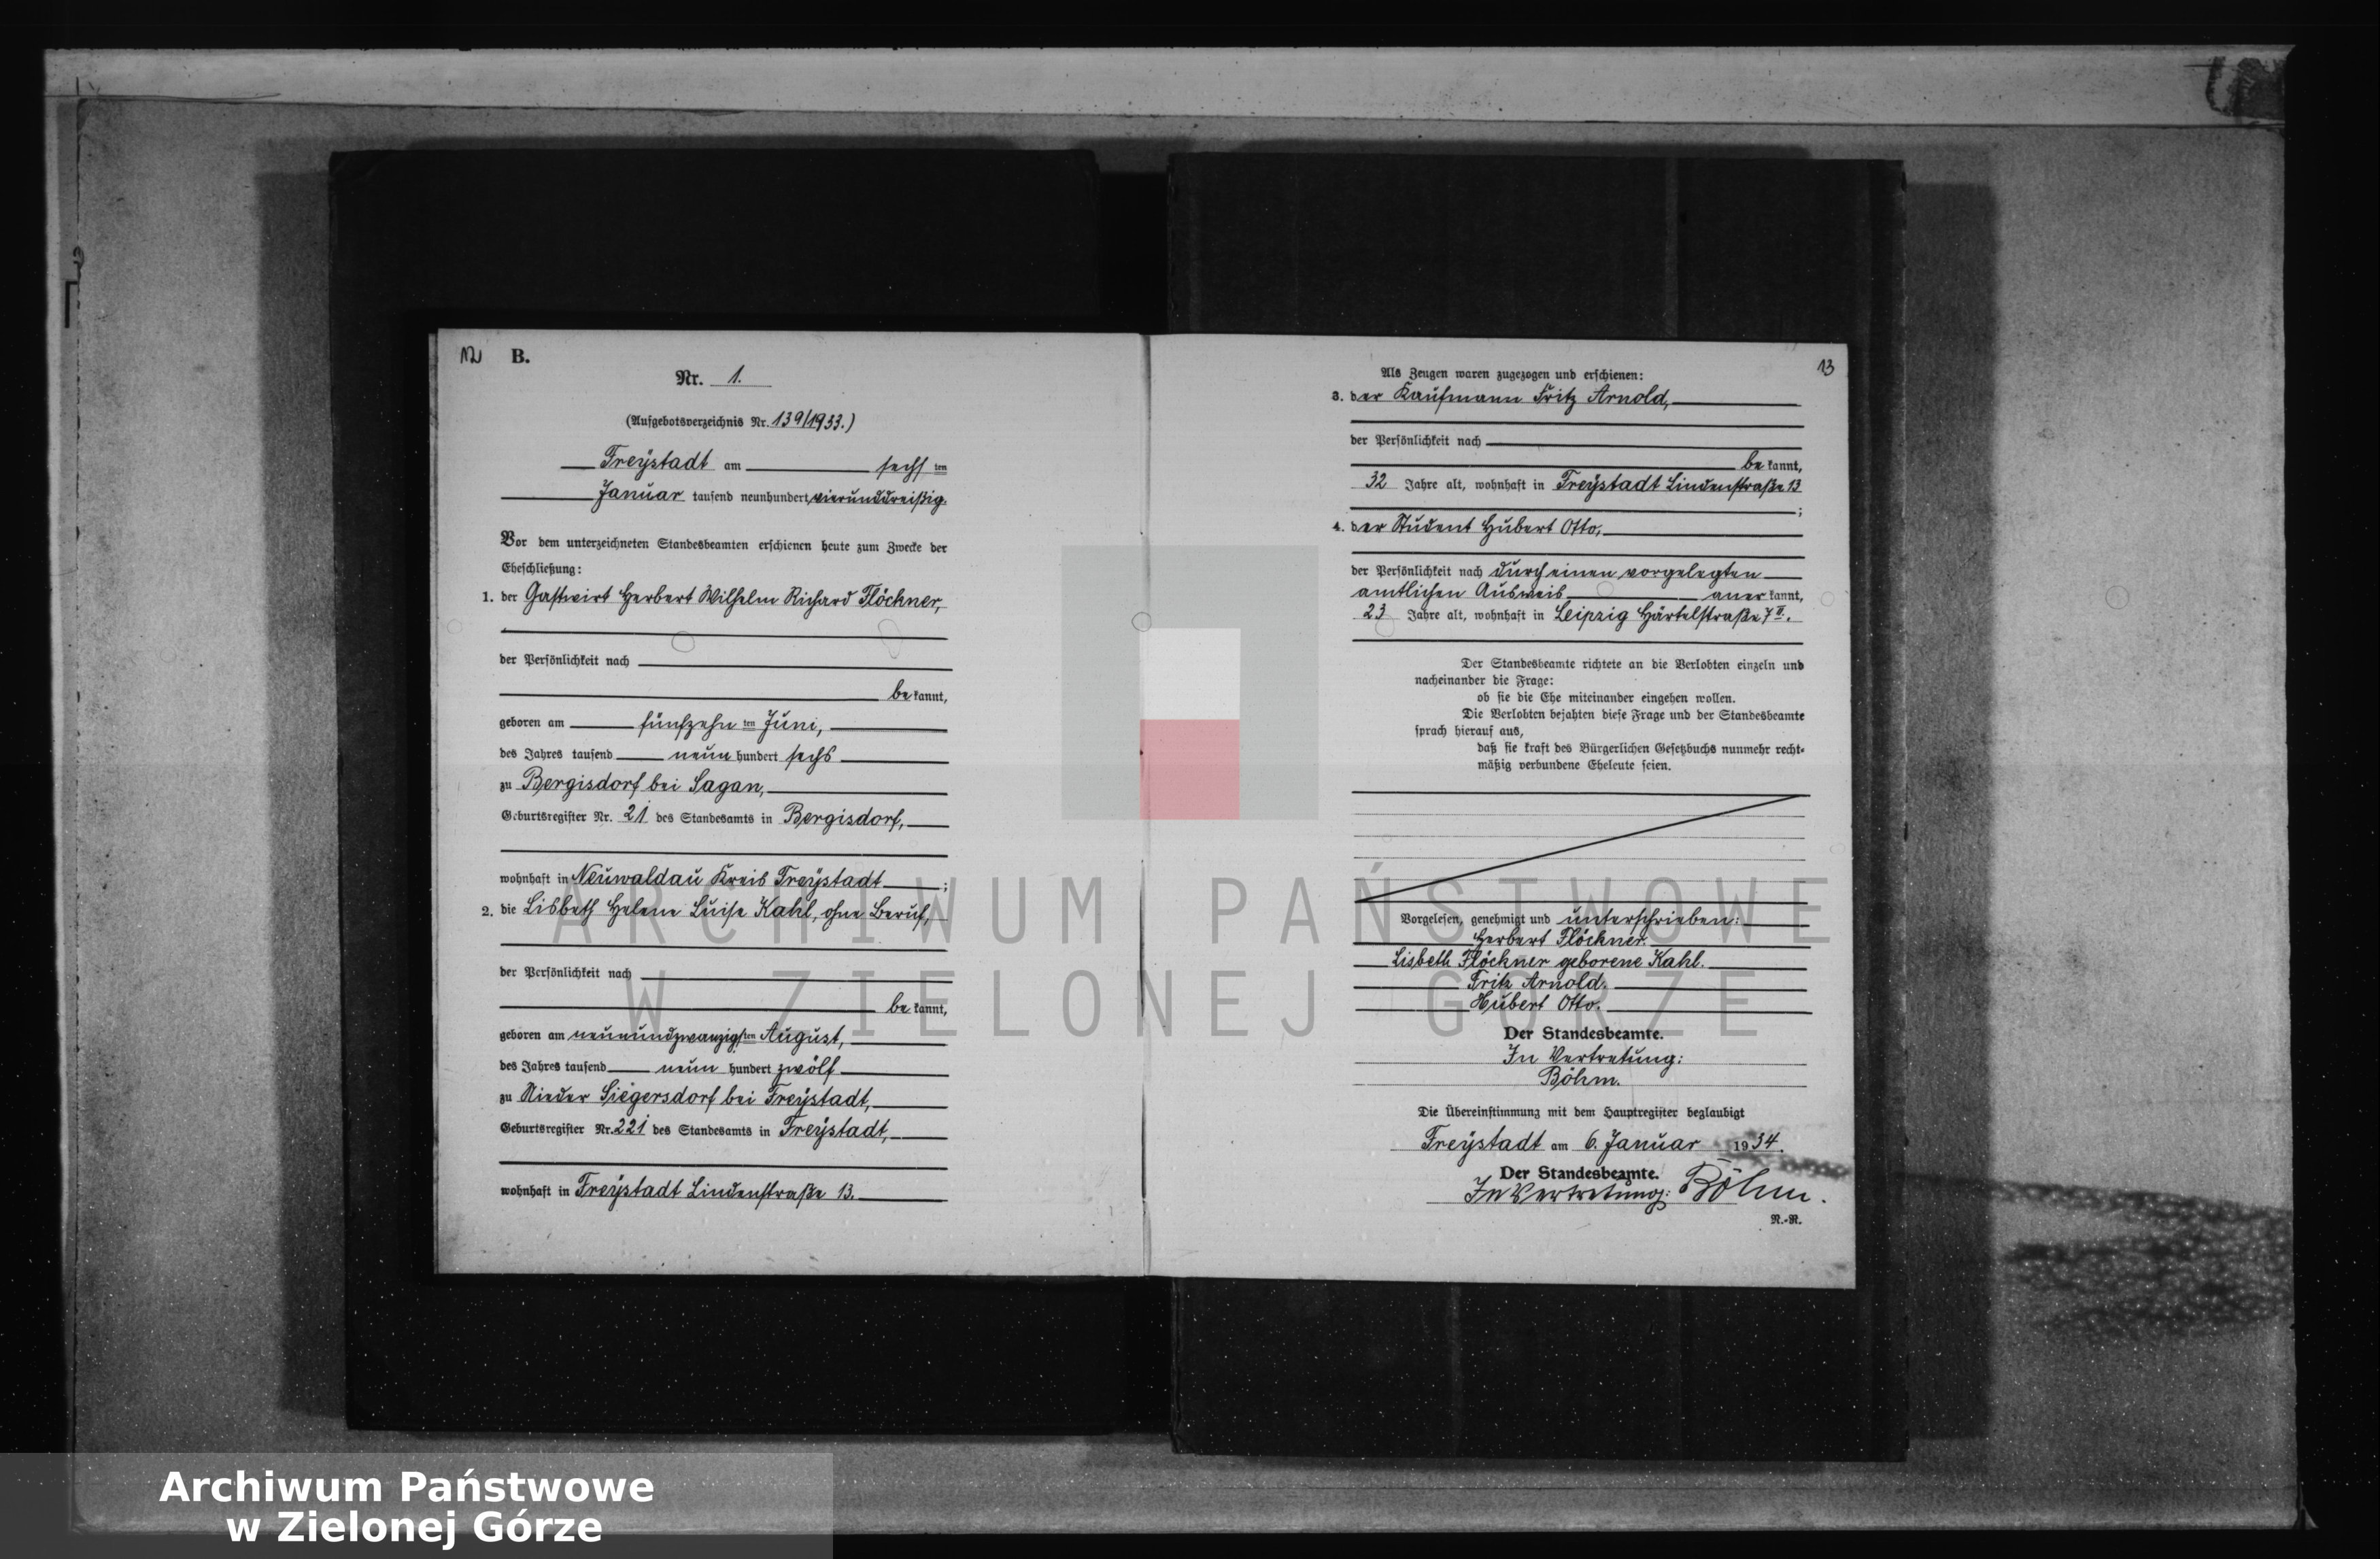 12 B.
Nr. 1.
(Aufgebotsverzeichnis Nr. 139/1933.)
Freystadt am sechsten
Januar tausend neunhundert vierunddreißig.
Vor dem unterzeichneten Standesbeamten erschienen heute zum Zwecke der
Eheschließung:
1. der Gastwirt Herbert Wilhelm Richard Flöckner,
der Persönlichkeit nach
bekannt,
geboren am fünfzehnten Juni,
des Jahres tausend neunhundert sechs
zu Bergisdorf bei Sagan,
Geburtsregister Nr. 21 des Standesamts in Bergisdorf,
wohnhaft in Neuwaldau Kreis Freystadt;
2. die Lisbeth Helene Luise Kahl, ohne Beruf,
der Persönlichkeit nach
bekannt,
geboren am neunundzwanzigsten August,
des Jahres tausend neunhundert zwölf
zu Nieder Siegersdorf bei Freystadt,
Geburtsregister Nr. 221 des Standesamts in Freystadt,
wohnhaft in Freystadt Lindenstraße 13.
13
Als Zeugen waren zugezogen und erschienen:
3. der Kaufmann Fritz Arnold,
der Persönlichkeit nach
bekannt,
32 Jahre alt, wohnhaft in Freystadt Lindenstraße 13
;
4. der Student Hubert Otto,
der Persönlichkeit nach durch einen vorgelegten
amtlichen Ausweis anerkannt,
23 Jahre alt, wohnhaft in Leipzig Härtelstraße 7 II.
Der Standesbeamte richtete an die Verlobten einzeln und
nacheinander die Frage:
ob sie die Ehe miteinander eingehen wollen.
Die Verlobten bejahten diese Frage und der Standesbeamte
sprach hierauf aus,
daß sie kraft des Bürgerlichen Gesetzbuchs nunmehr recht-
mäßig verbundene Eheleute seien.
Vorgelesen, genehmigt und unterschrieben:
Herbert Flöckner.
Lisbeth Flöckner geborene Kahl.
Fritz Arnold.
Hubert Otto.
Der Standesbeamte.
In Vertretung:
Böhm.
Die Übereinstimmung mit dem Hauptregister beglaubigt
Freystadt am 6. Januar 1934.
Der Standesbeamte.
In Vertretung: Böhm.
N.-R.
ARCHIWUM PAŃSTWOWE
W ZIELONEJ GÓRZE
Archiwum Państwowe
w Zielonej Górze